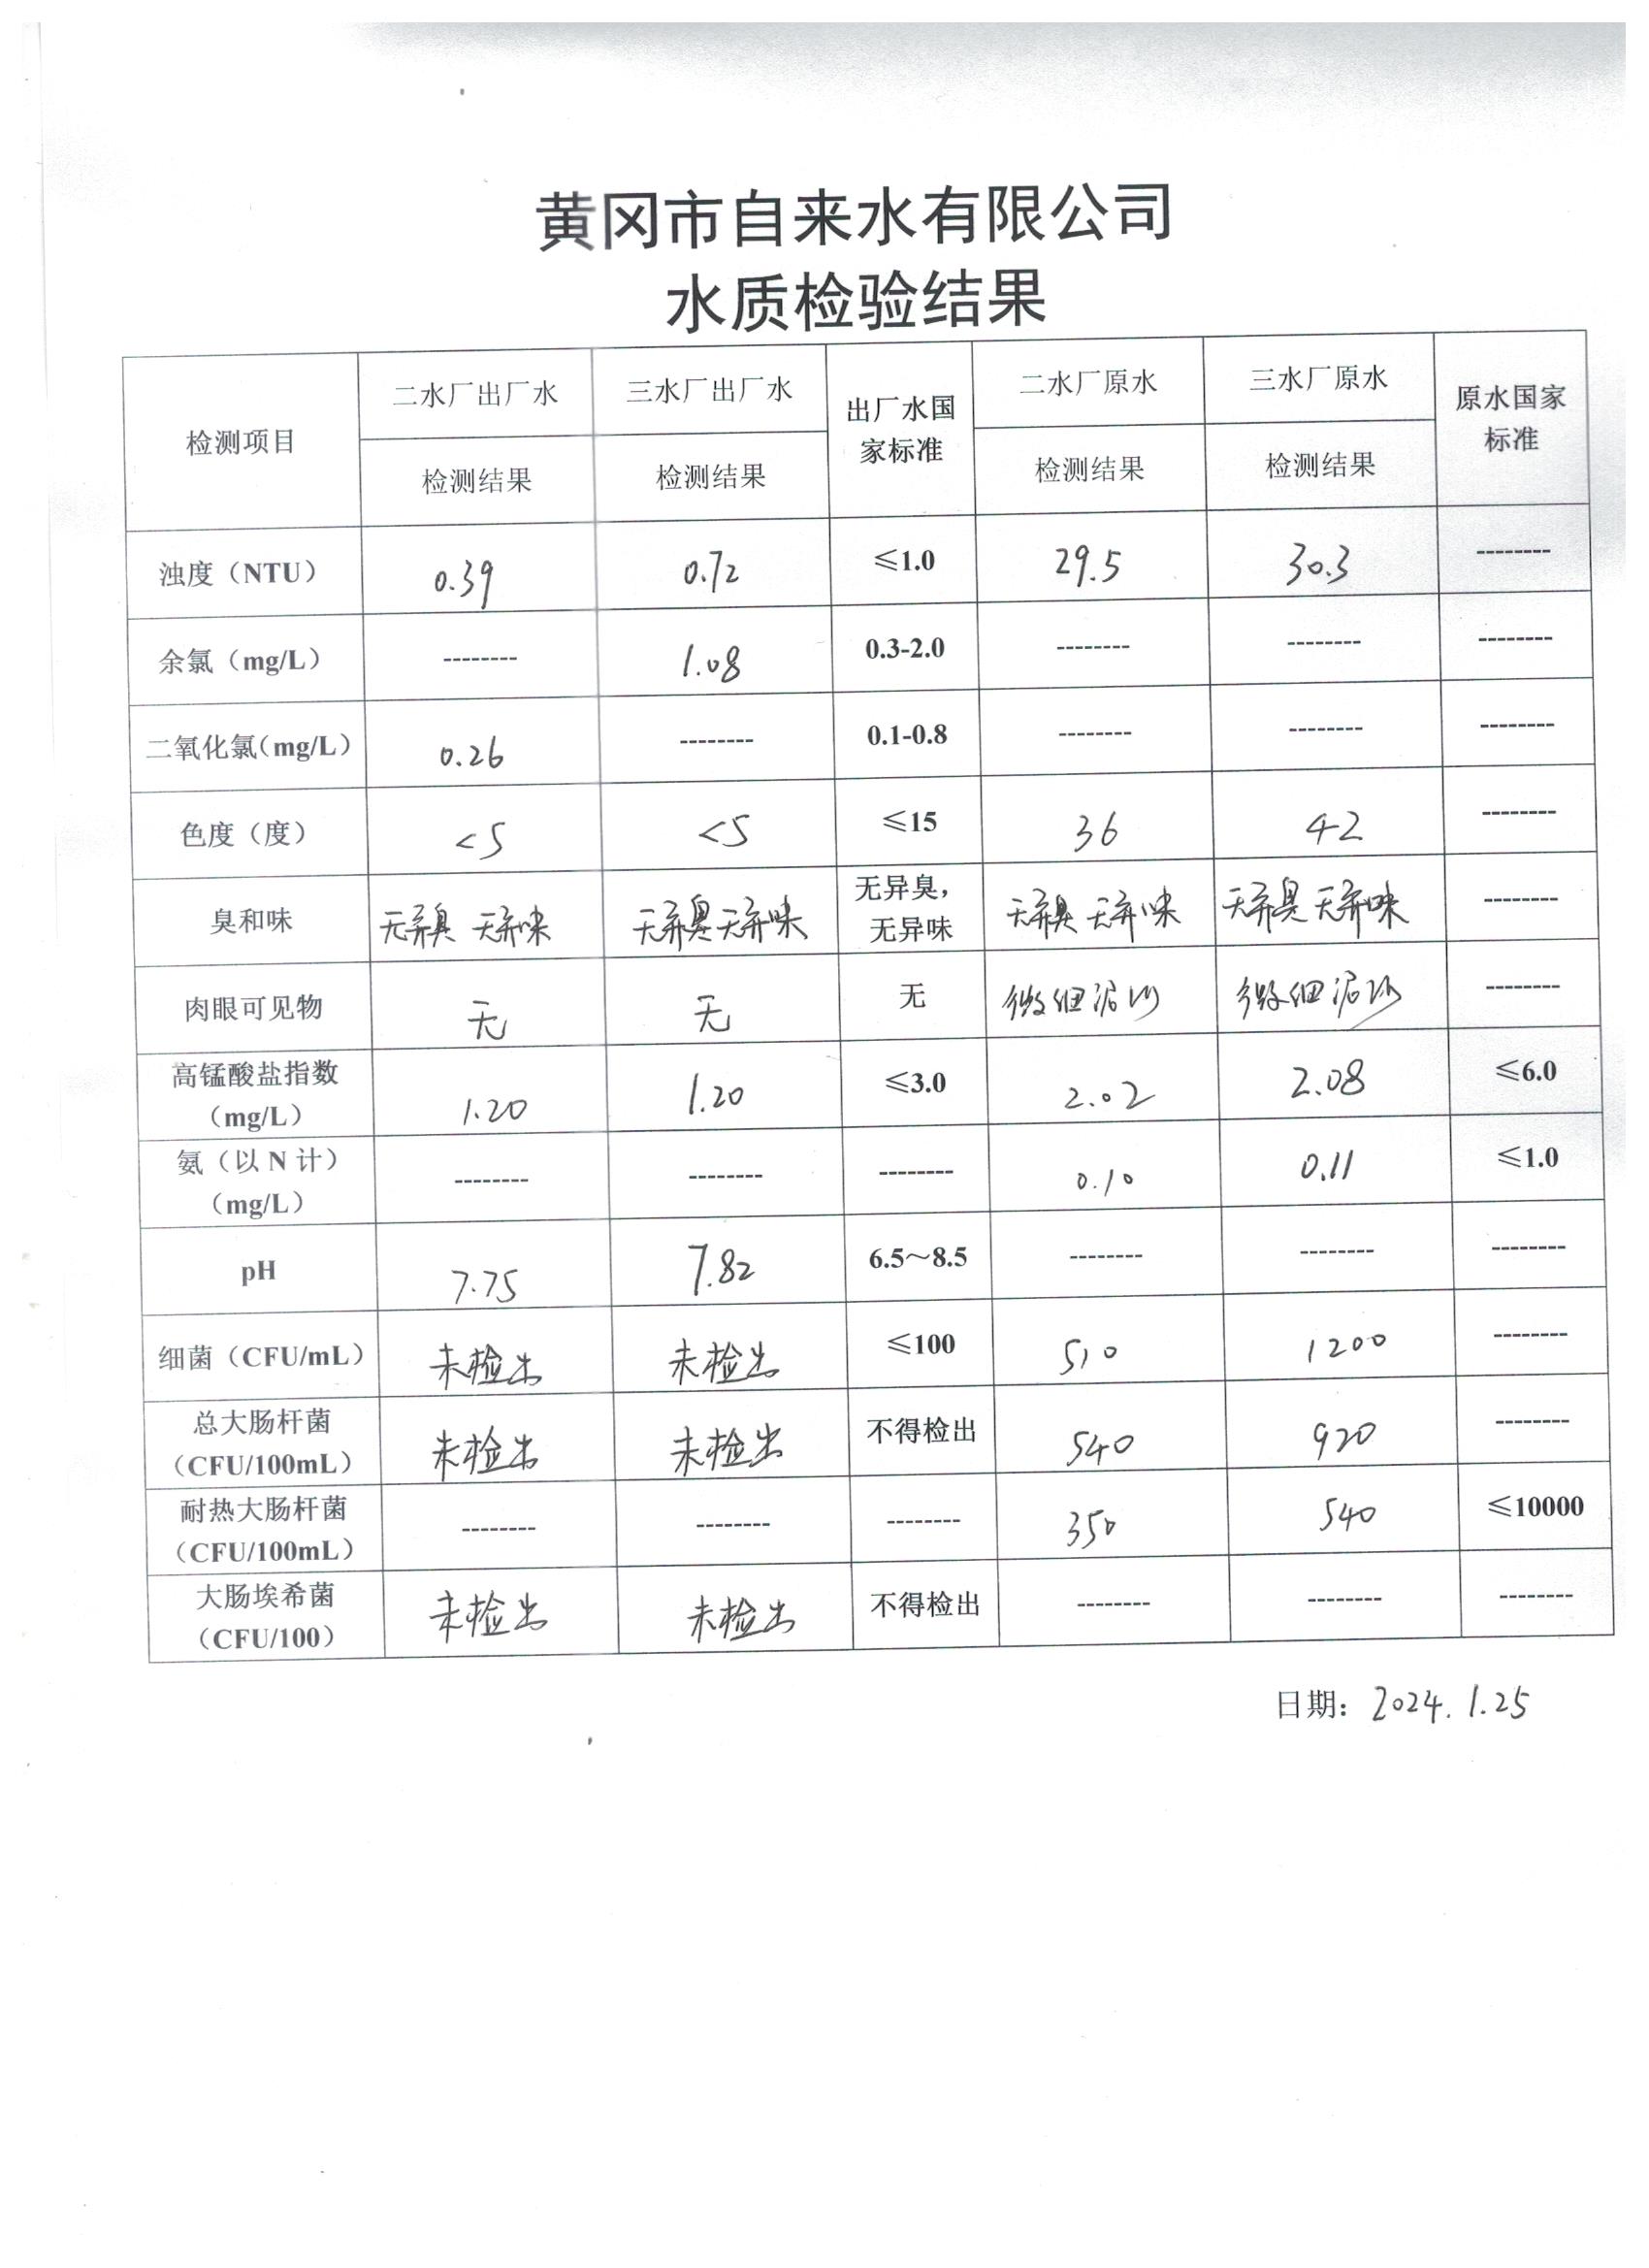 黄冈市自来水有限公司
水质检验结果
检测项目 二水厂出厂水 三水厂出厂水 出厂水国家标准 二水厂原水 三水厂原水 原水国家标准
检测结果 检测结果 检测结果 检测结果
浊度（NTU） 0.39 0.72 ≤1.0 29.5 30.3 --------
余氯（mg/L） -------- 1.08 0.3-2.0 -------- -------- --------
二氧化氯（mg/L） 0.26 -------- 0.1-0.8 -------- -------- --------
色度（度） <5 <5 ≤15 36 42 --------
臭和味 无异臭 无异味 无异臭 无异味 无异臭，无异味 无异臭 无异味 无异臭 无异味 --------
肉眼可见物 无 无 无 微细泥沙 微细泥沙 --------
高锰酸盐指数（mg/L） 1.20 1.20 ≤3.0 2.02 2.08 ≤6.0
氨（以 N 计）（mg/L） -------- -------- -------- 0.10 0.11 ≤1.0
pH 7.75 7.82 6.5～8.5 -------- -------- --------
细菌（CFU/mL） 未检出 未检出 ≤100 510 1200 --------
总大肠杆菌（CFU/100mL） 未检出 未检出 不得检出 540 920 --------
耐热大肠杆菌（CFU/100mL） -------- -------- -------- 350 540 ≤10000
大肠埃希菌（CFU/100） 未检出 未检出 不得检出 -------- -------- --------
日期：2024.1.25